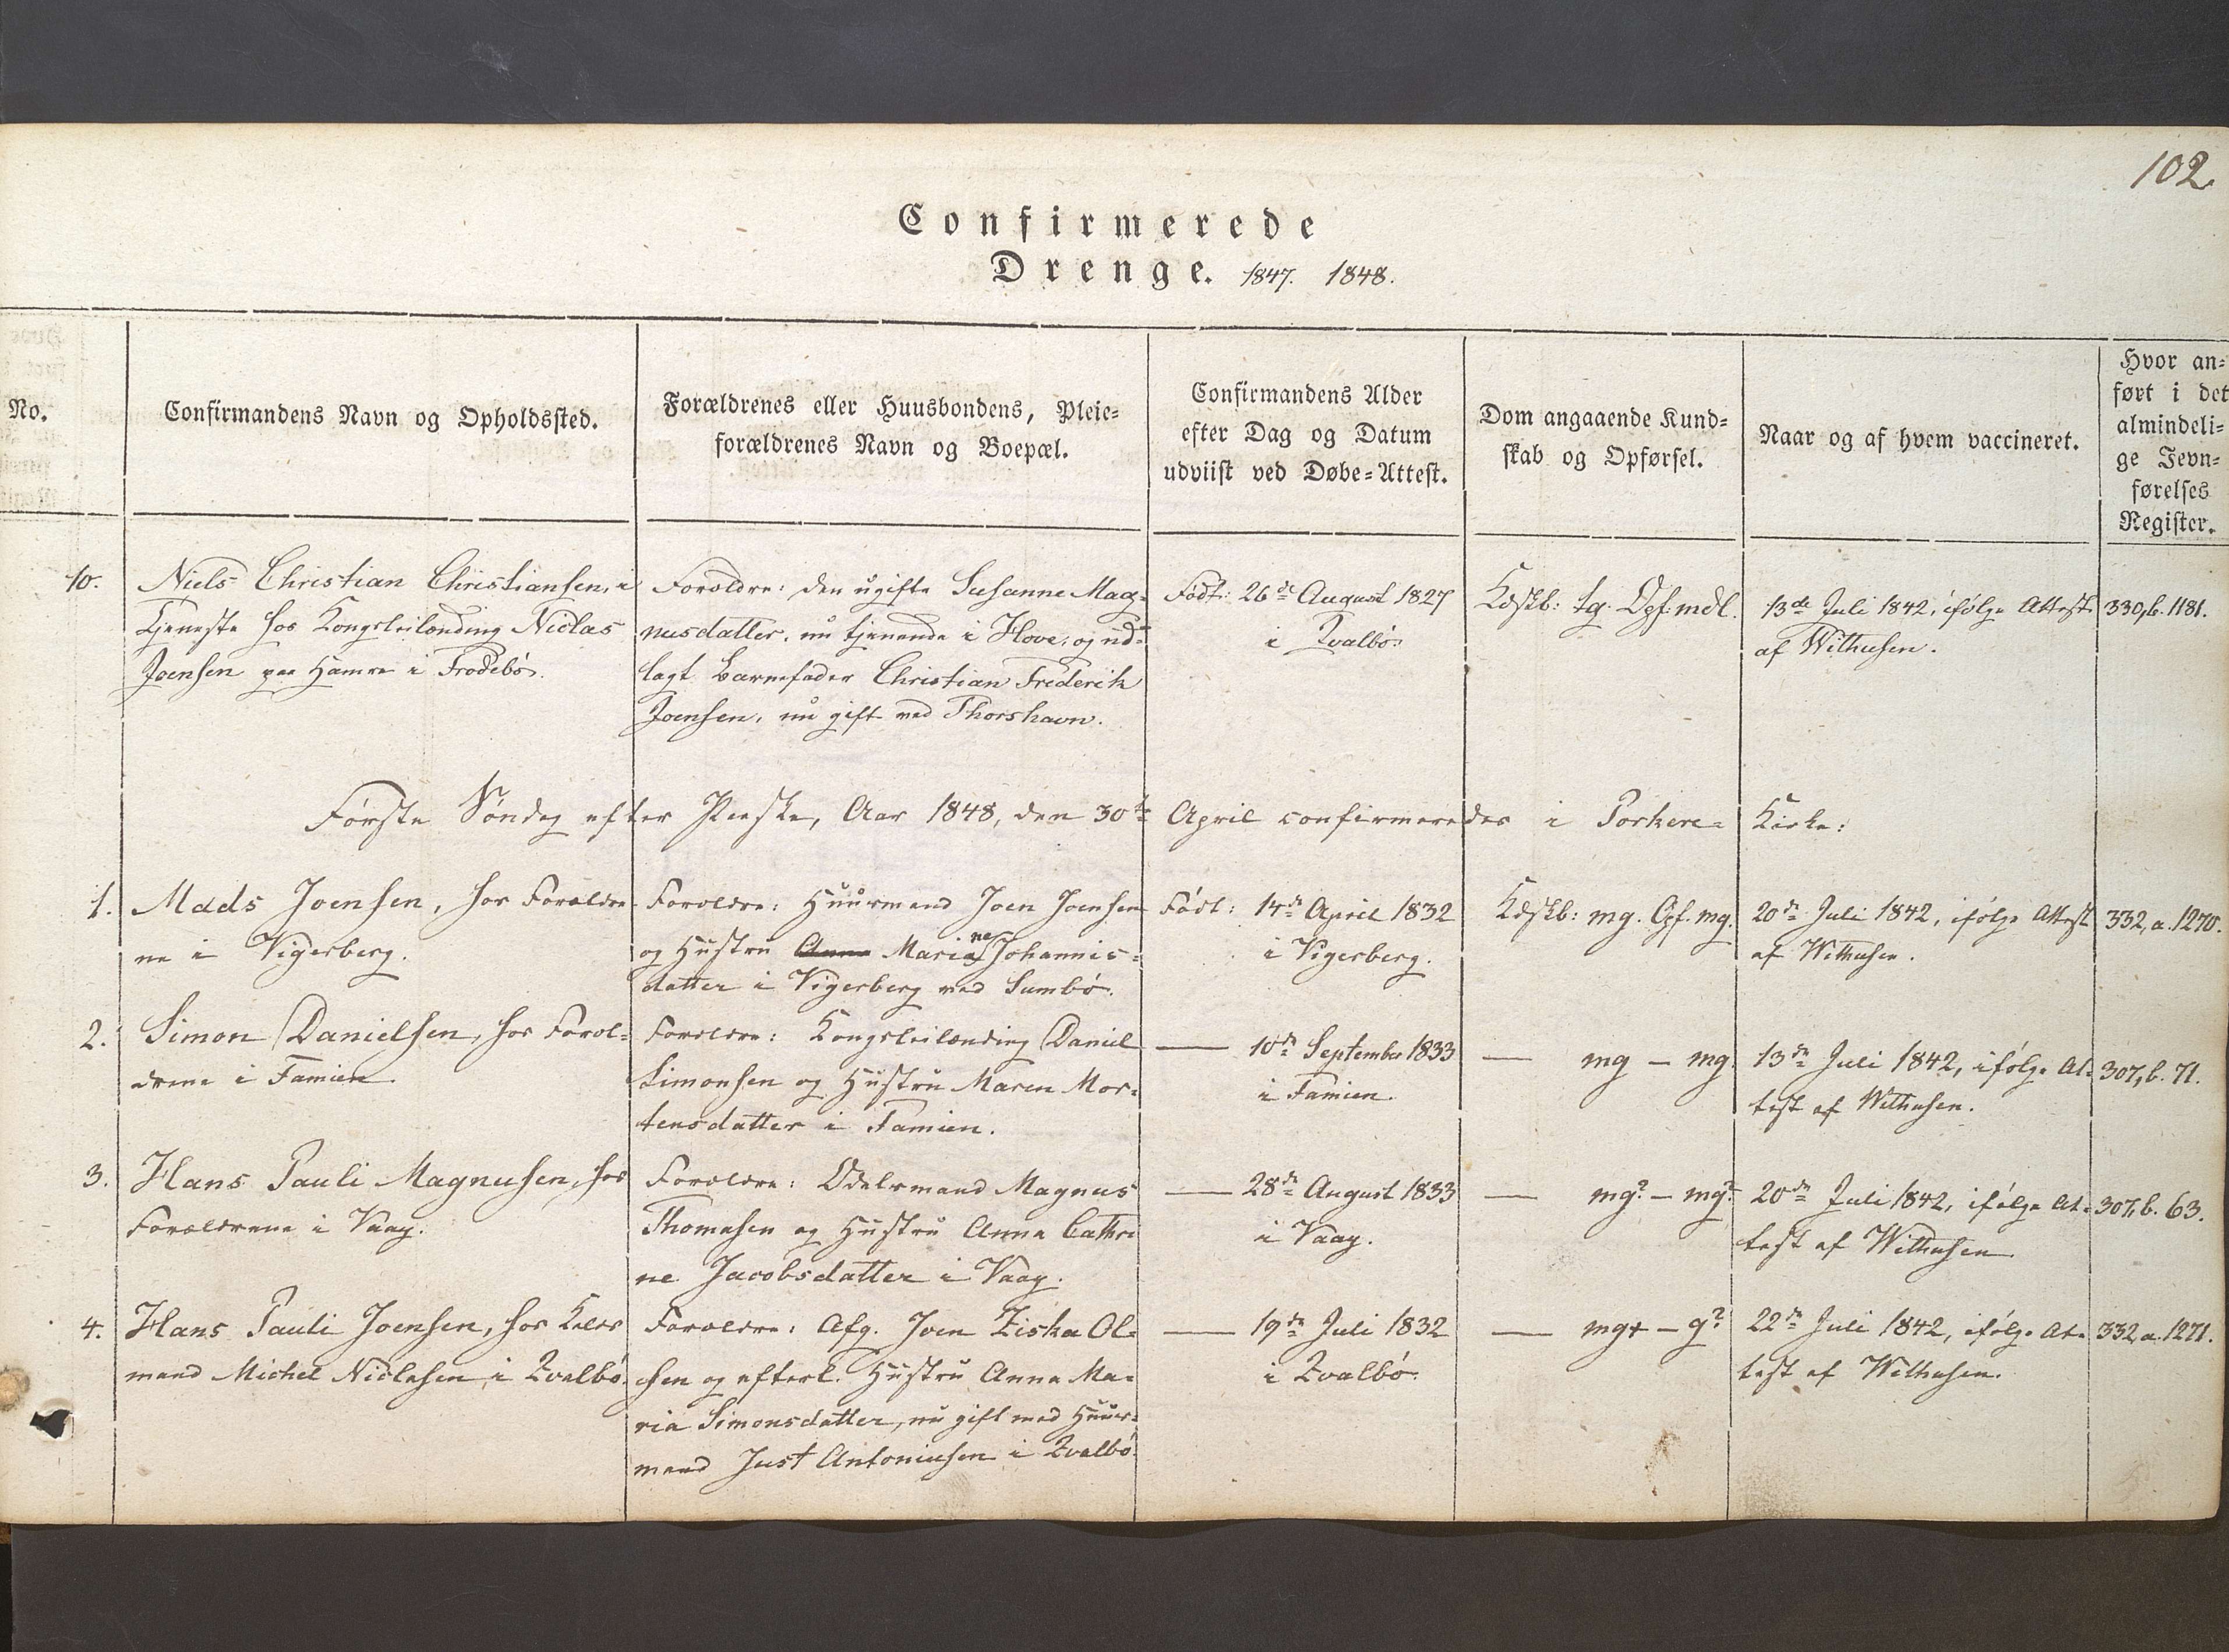 102.
Confirmerede
Drenge. 1847. 1848.
No.
Confirmandens Navn og Opholdssted.
Forældrenes eller Huusbondens, Pleie-
forældrenes Navn og Boepæl.
Confirmandens Alder
efter Dag og Datum
udviist ved Døbe-Attest.
Dom angaaende Kund-
skab og Opførsel.
Naar og af hvem vaccineret.
Hvor an-
ført i det
almindeli-
ge Jevn-
førelses
Register.
10.
Niels Christian Christiansen, i
Tjeneste hos Kongsleilænding Niclas
Joensen paa Hamre i Frodebø.
Forældre: den ugifte Susanne Mag-
nusdatter, nu tjenende i Hove, og ud-
lagt Barnefader Christian Frederik
Joensen, nu gift ved Thorshavn.
Født: 26de August 1827
i Qvalbø.
Kdskb: tg. Opf. mdl.
13de Juli 1842, ifølge Attest
af Withusen.
330,b. 1181.
Første Søndag efter Paaske, Aar 1848, den 30te April confirmeredes i Porkere- Kirke:
1.
Mads Joensen, hos Forældre-
ne i Vigerberg.
Forældre: Huusmand Joen Joensen
og Hustru Anna Mariane Johannis-
datter i Vigerberg ved Sumbø.
Født: 14de April 1832
i Vigerberg.
Kdskb: mg. Opf. mg.
20de Juli 1842, ifølge Attest
af Withusen.
332, a. 1270.
2.
Simon Danielsen, hos Foræl-
drene i Famien.
Forældre: Kongsleilænding Daniel
Simonsen og Hustru Maren Mor-
tensdatter i Famien.
— 10de September 1833
i Famien.
— mg — mg.
13de Juli 1842, ifølge At-
test af Withusen.
307, b. 71.
3.
Hans Pauli Magnusen, hos
Forældrene i Vaag.
Forældre: Odelsmand Magnus
Thomasen og Hustru Anna Cathri
ne Jacobsdatter i Vaag.
— 28de August 1833
i Vaag.
— mg? — mg?
20de Juli 1842, ifølge At-
test af Withusen
307, b. 63.
4.
Hans Pauli Joensen, hos
mand Michel Niclasen i Qvalbø.
Forældre: Afg. Joen Ziska Ol-
sen og efterl. Hustru Anna Ma-
ria Simonsdatter, nu gift med Huus-
mand Just Antoniusen i Qvalbø.
— 19de Juli 1832
i Qvalbø.
— mg+ — g?
22de Juli 1842, ifølge At-
test af Withusen.
332, a. 1271.